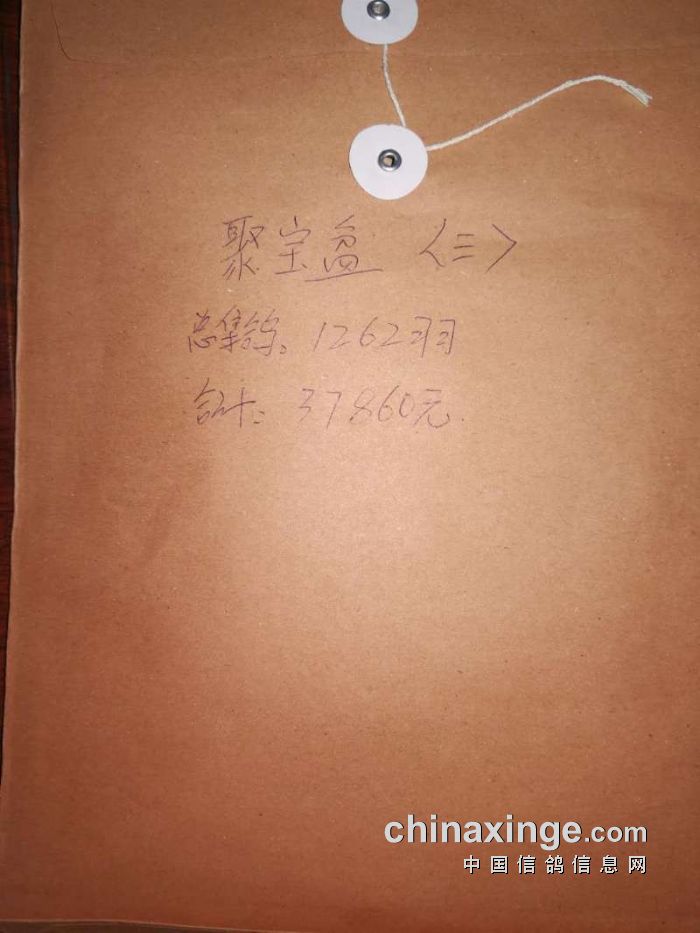 聚宝盆〈三〉
总集鸽。1262羽
合计:37860元.
chinaxinge.com
中国信鸽信息网